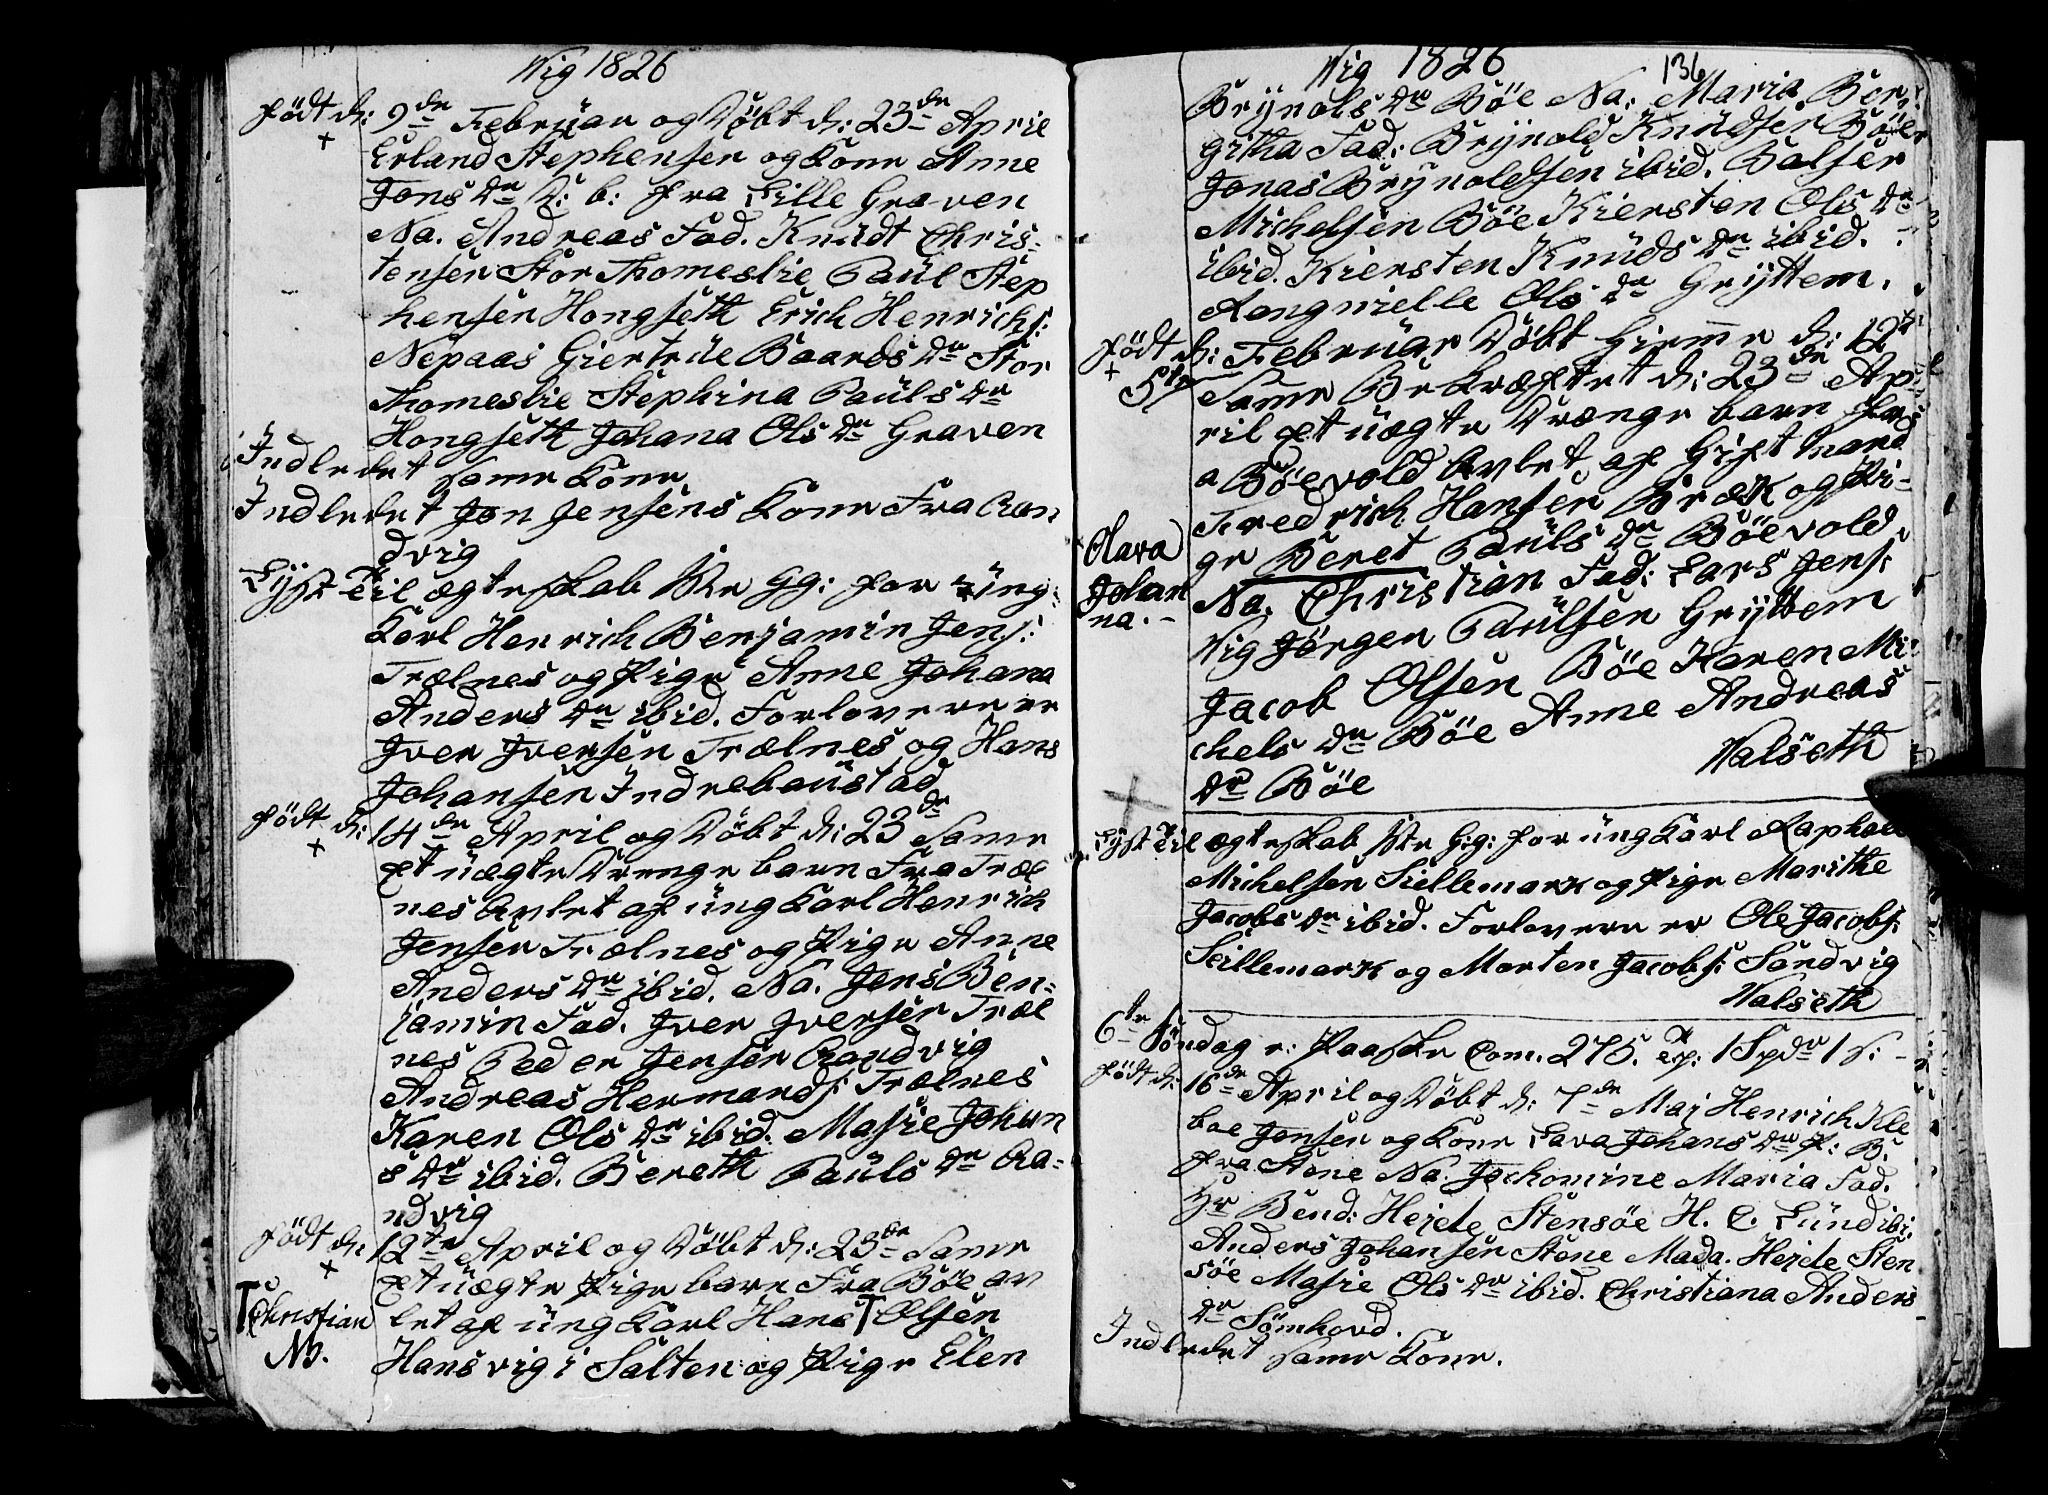 Wig 1826
født d: 9de Februar og Døbt d: 23de April
+
Erland Stephensen og Kone Anne
Jons dr D: b: fra Lille Graven
Na. Andreas Fad. Knudt Chris-
tensen Stor Thomeslie Paul Step
hensen Hongseth Erich Henrichs:
Nepaas Giertrue Baards dr Stor
Thomeslie Stephina Pauls dr
Hongseth Johana Ols dr Graven
Indledet same Kone
Indledet Jon Jensens Kone Fra Ran
dvig
Lyst til ægteskab 1te Gg: for ung-
Karl Henrich Benjamin Jens:
Trælnes og Pige Anne Johana
Anders dr ibid. Forlovere er
Iver Iversen Trælnes og Hans
Johansen Indrebaustad
født d: 14de April og Døbt d: 23de Same
+
et uægte Drenge barn Fra Træl
nes Avlet af ung Karl Henrich
Jensen Trælnes og Pige Anne
Anders dr ibid. Na. Jens Ben-
jamin Fad. Iver Iversen Træl
nes Peder Jensen Randvig
Andreas Hermands: Trælnes
Karen Ols dr ibid. Masie Johan
s dr ibid. Bereth Pauls dr Ra-
ndvig
født d: 12te April og Døbt d: 23de Same
+
et uægte Pige barn Fra Bøe av
Christian
let af ung Karl Hans Olsen
NB.
Hansvig i Salten og Pige Elen
Wig 1826
136
Brynols dr Bøe Na: Maria Ber-
githa Fad: Brynold Knudsen Bøe
Jonas Brynoldsen ibid. Balser
Michelsen Bøe Kiersten Ols dr
ibid. Kiersten Knuds dr ibid.
Rangnielle Ols dr Gryttem.
født d: 5te Februar Døbt Hieme d: 12te
+
Same Bekræftet d: 23de Ap-
ril et uægte Drenge barn fra
Bøevold Avlet af Gift Mand
Fredrich Hansen Bræk og Pi-
ge Beret Pauls dr Bøevold
Olava
Johan
na.-
Na. Christian Fad: Lars Jens:
Wig Jørgen Paulsen Gryttem
Jacob Olsen Bøe Karen Mi-
chels dr Bøe Anne Andreas
dr Bøe
Walseth
Lyst til ægteskab 1te Gg: for ung Karl Raphael
Michelsen Sillemark og Pige Marithe
Jacobs dr ibid. Forlovere er Ole Jacobs:
Seillemark og Morten Jacobs: Sandvig
Walseth
6te Søndag e: Paaske Com. 275. 1 Spdr 1 s: -
født d: 16de April og Døbt d: 7de Maj Henrich Kle
boe Jensen og Kone Lava Johans dr P: B.
fra Stene Na. Jochomine Maria Fad.
Hr Bend: Hejde Stensøe H. C. Lund ibi
Anders Johansen Stene Mada. Hejde Sten
søe Masie Ols dr ibid. Christiana Anders
dr Sømhovd.
Indledet same Kone.